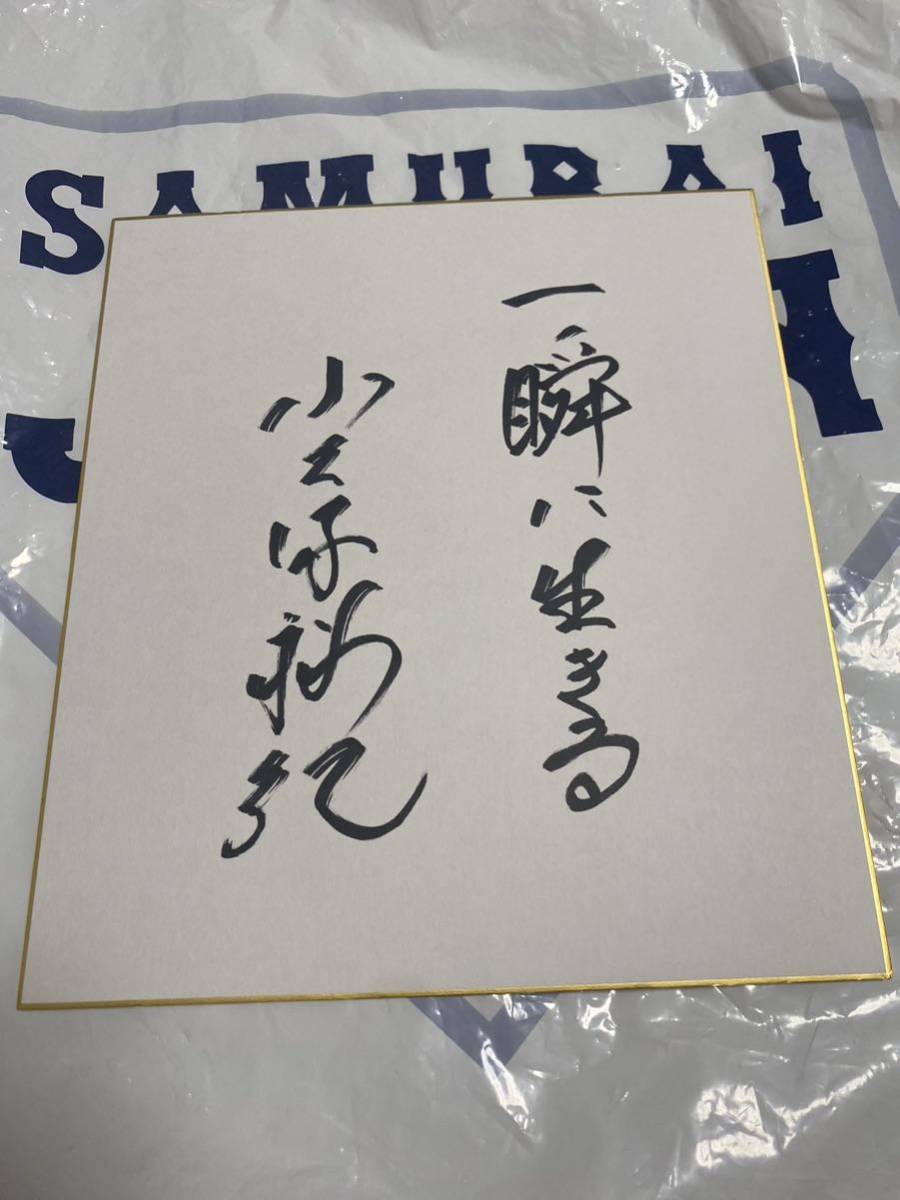 SAMURAI
一瞬に生きる
小久保裕紀